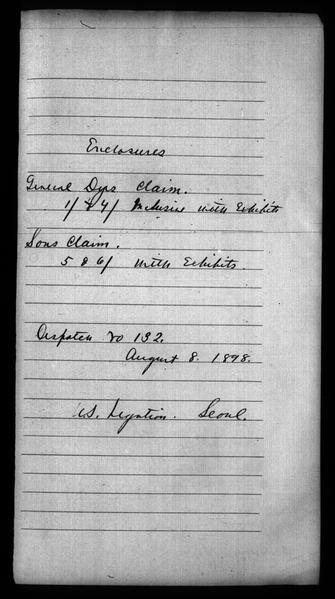 Enclosures
General Dyes Claim.
1/ & 4/ Inclusive with Exhibits
Sons Claim.
5 & 6/ with Exhibits.
Dispatch No 132.
August 8. 1898.
US. Legation. Seoul.